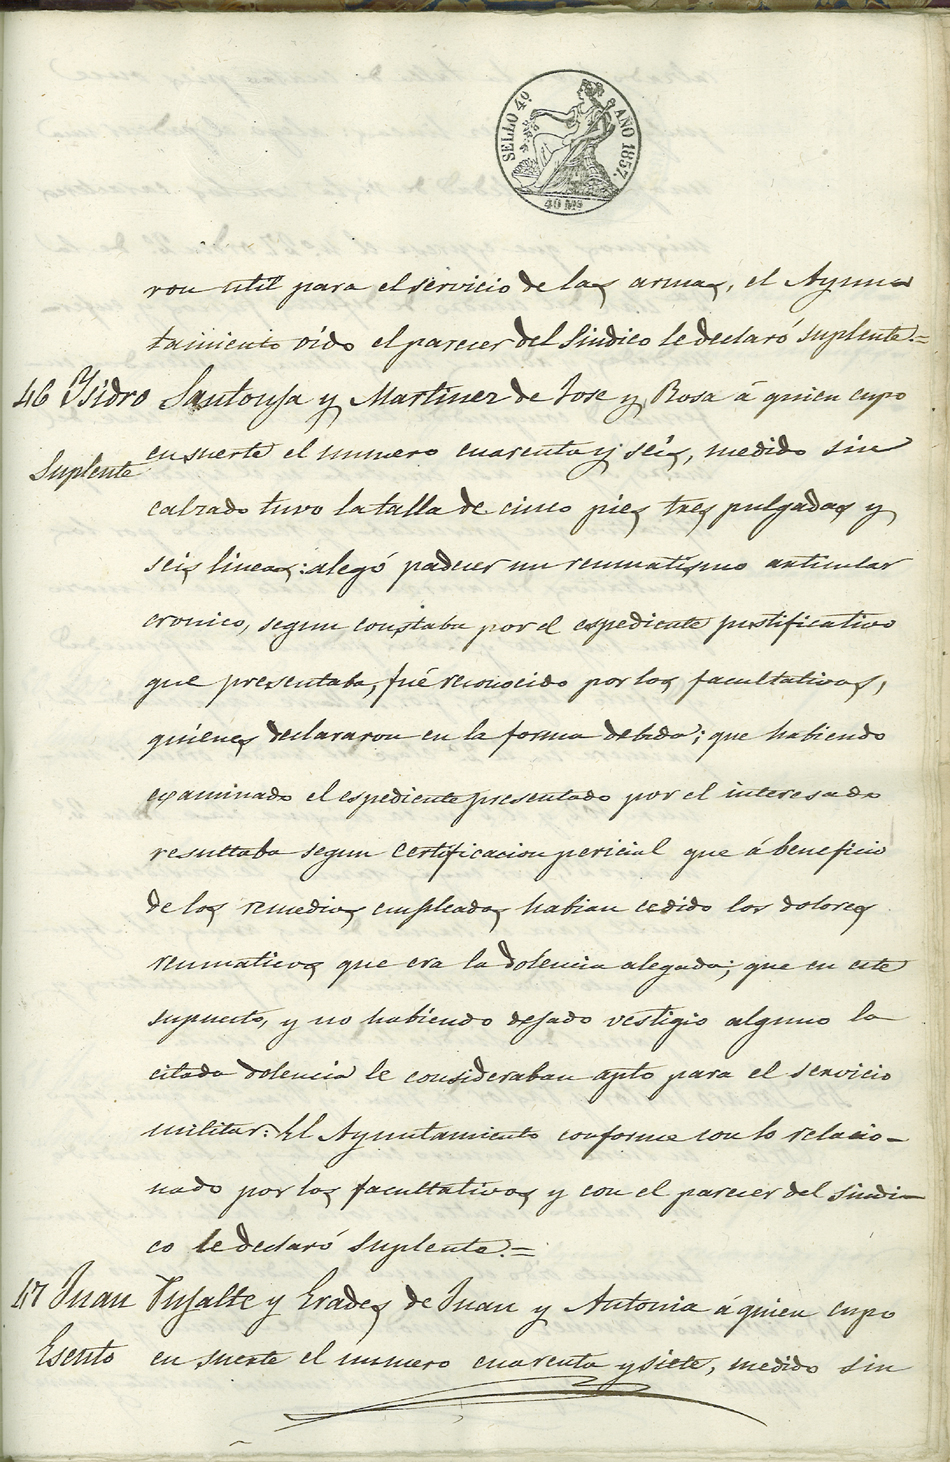 SELLO 4º AÑO 1857.
40 Ms
ron util para el servicio de las armas, el Ayunta
tamiento oido el parecer del Sindico le declaró suplente.=
46 Ysidro Santonja y Martinez de Jose y Rosa á quien cupo
Suplente en suerte el numero cuarenta y seis, medido sin
calzado tuvo la talla de cinco pies tres pulgadas y
seis lineas: alegó padecer un reumatismo articular
cronico, segun constaba por el espediente justificativo
que presentaba, fué reconocido por los facultativos,
quienes declararon en la forma debida; que habiendo
examinado el espediente presentado por el interesado
resultaba segun certificacion pericial que á beneficio
de los remedios empleados habian cedido los dolores
reumaticos que era la dolencia alegada; que en este
supuesto, y no habiendo dejado vestigio alguno la
citada dolencia le consideraban apto para el servicio
militar: El Ayuntamiento conforme con lo relacio-
nado por los facultativos y con el parecer del sindi-
co le declaró suplente.=
47 Juan Pujalte y Erades de Juan y Antonia á quien cupo
Esento en suerte el numero cuarenta y siete, medido sin